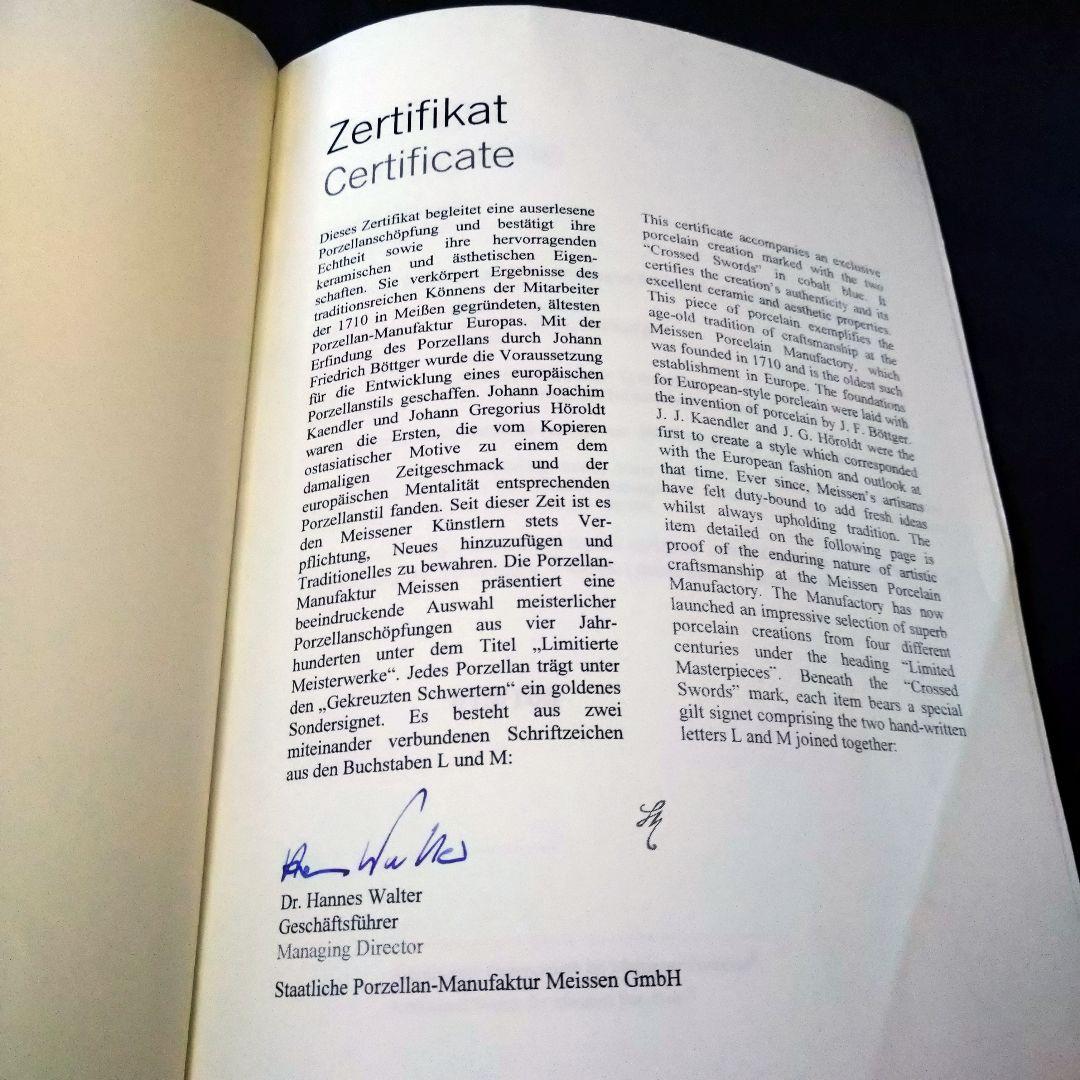 Zertifikat
Certificate
Dieses Zertifikat begleitet eine auserlesene
Porzellanschöpfung und bestätigt ihre
Echtheit sowie ihre hervorragenden
keramischen und ästhetischen Eigen-
schaften. Sie verkörpert Ergebnisse des
traditionsreichen Könnens der Mitarbeiter
der 1710 in Meißen gegründeten, ältesten
Porzellan-Manufaktur Europas. Mit der
Erfindung des Porzellans durch Johann
Friedrich Böttger wurde die Voraussetzung
für die Entwicklung eines europäischen
Porzellanstils geschaffen. Johann Joachim
Kaendler und Johann Gregorius Höroldt
waren die Ersten, die vom Kopieren
ostasiatischer Motive zu einem dem
damaligen Zeitgeschmack und der
europäischen Mentalität entsprechenden
Porzellanstil fanden. Seit dieser Zeit ist es
den Meissener Künstlern stets Ver-
pflichtung, Neues hinzuzufügen und
Traditionelles zu bewahren. Die Porzellan-
Manufaktur Meissen präsentiert eine
beeindruckende Auswahl meisterlicher
Porzellanschöpfungen aus vier Jahr-
hunderten unter dem Titel „Limitierte
Meisterwerke“. Jedes Porzellan trägt unter
den „Gekreuzten Schwertern“ ein goldenes
Sondersignet. Es besteht aus zwei
miteinander verbundenen Schriftzeichen
aus den Buchstaben L und M:
This certificate accompanies an exclusive
porcelain creation marked with the two
“Crossed Swords” in cobalt blue. It
certifies the creation's authenticity and its
excellent ceramic and aesthetic properties.
This piece of porcelain exemplifies the
age-old tradition of craftsmanship at the
Meissen Porcelain Manufactory, which
was founded in 1710 and is the oldest such
establishment in Europe. The foundations
for European-style porcleain were laid with
the invention of porcelain by J. F. Böttger.
J. J. Kaendler and J. G. Höroldt were the
first to create a style which corresponded
with the European fashion and outlook at
that time. Ever since, Meissen's artisans
have felt duty-bound to add fresh ideas
whilst always upholding tradition. The
item detailed on the following page is
proof of the enduring nature of artistic
craftsmanship at the Meissen Porcelain
Manufactory. The Manufactory has now
launched an impressive selection of superb
porcelain creations from four different
centuries under the heading “Limited
Masterpieces”. Beneath the “Crossed
Swords” mark, each item bears a special
gilt signet comprising the two hand-written
letters L and M joined together:
LM
Hannes Walter
Dr. Hannes Walter
Geschäftsführer
Managing Director
Staatliche Porzellan-Manufaktur Meissen GmbH